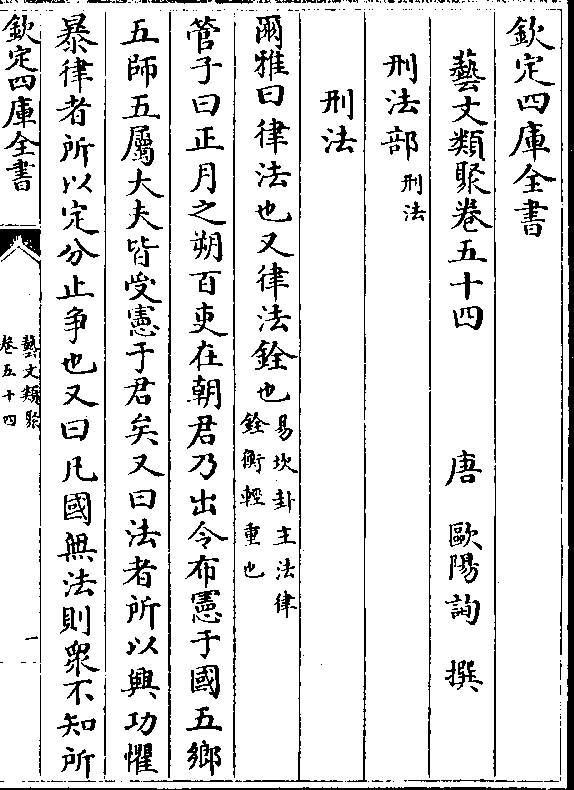 欽定四庫全書
藝文類聚卷五十四
唐 歐陽詢 撰
刑法部 刑法
刑法
爾雅曰律法也又律法銓也 易坎卦主法律
銓衡輕重也
管子曰正月之朔百吏在朝君乃出令布憲于國五鄉
五師五屬大夫皆受憲于君矣又曰法者所以興功懼
暴律者所以定分止爭也又曰凡國無法則衆不知所
欽定四庫全書
藝文類聚
卷五十四
一